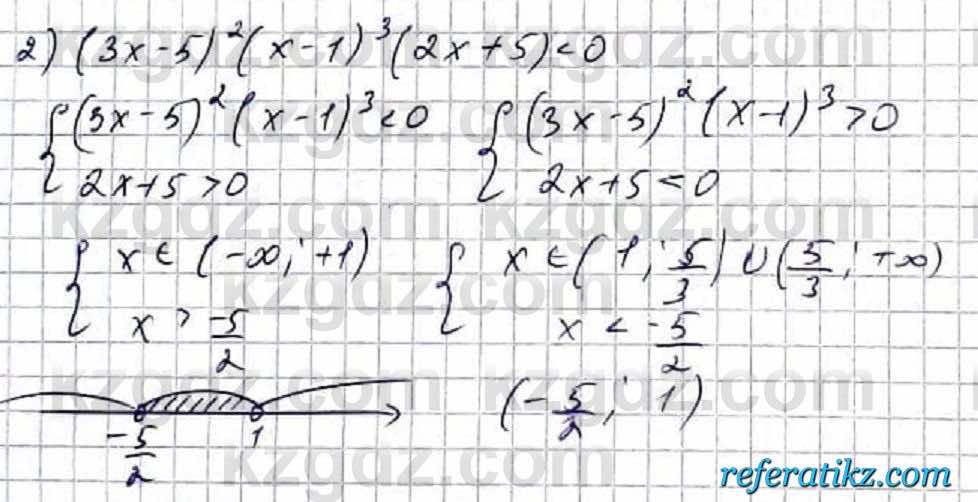 2) (3x-5)²(x-1)³(2x+5)<0
{ (3x-5)²(x-1)³<0 { (3x-5)²(x-1)³>0
2x+5>0 2x+5<0
{ x ∈ (-∞; +1) { x ∈ (1; 5/3) ∪ (5/3; +∞)
x > -5/2 x < -5/2
-5/2 1 (-5/2; 1)
kzgdz.com
referatikz.com